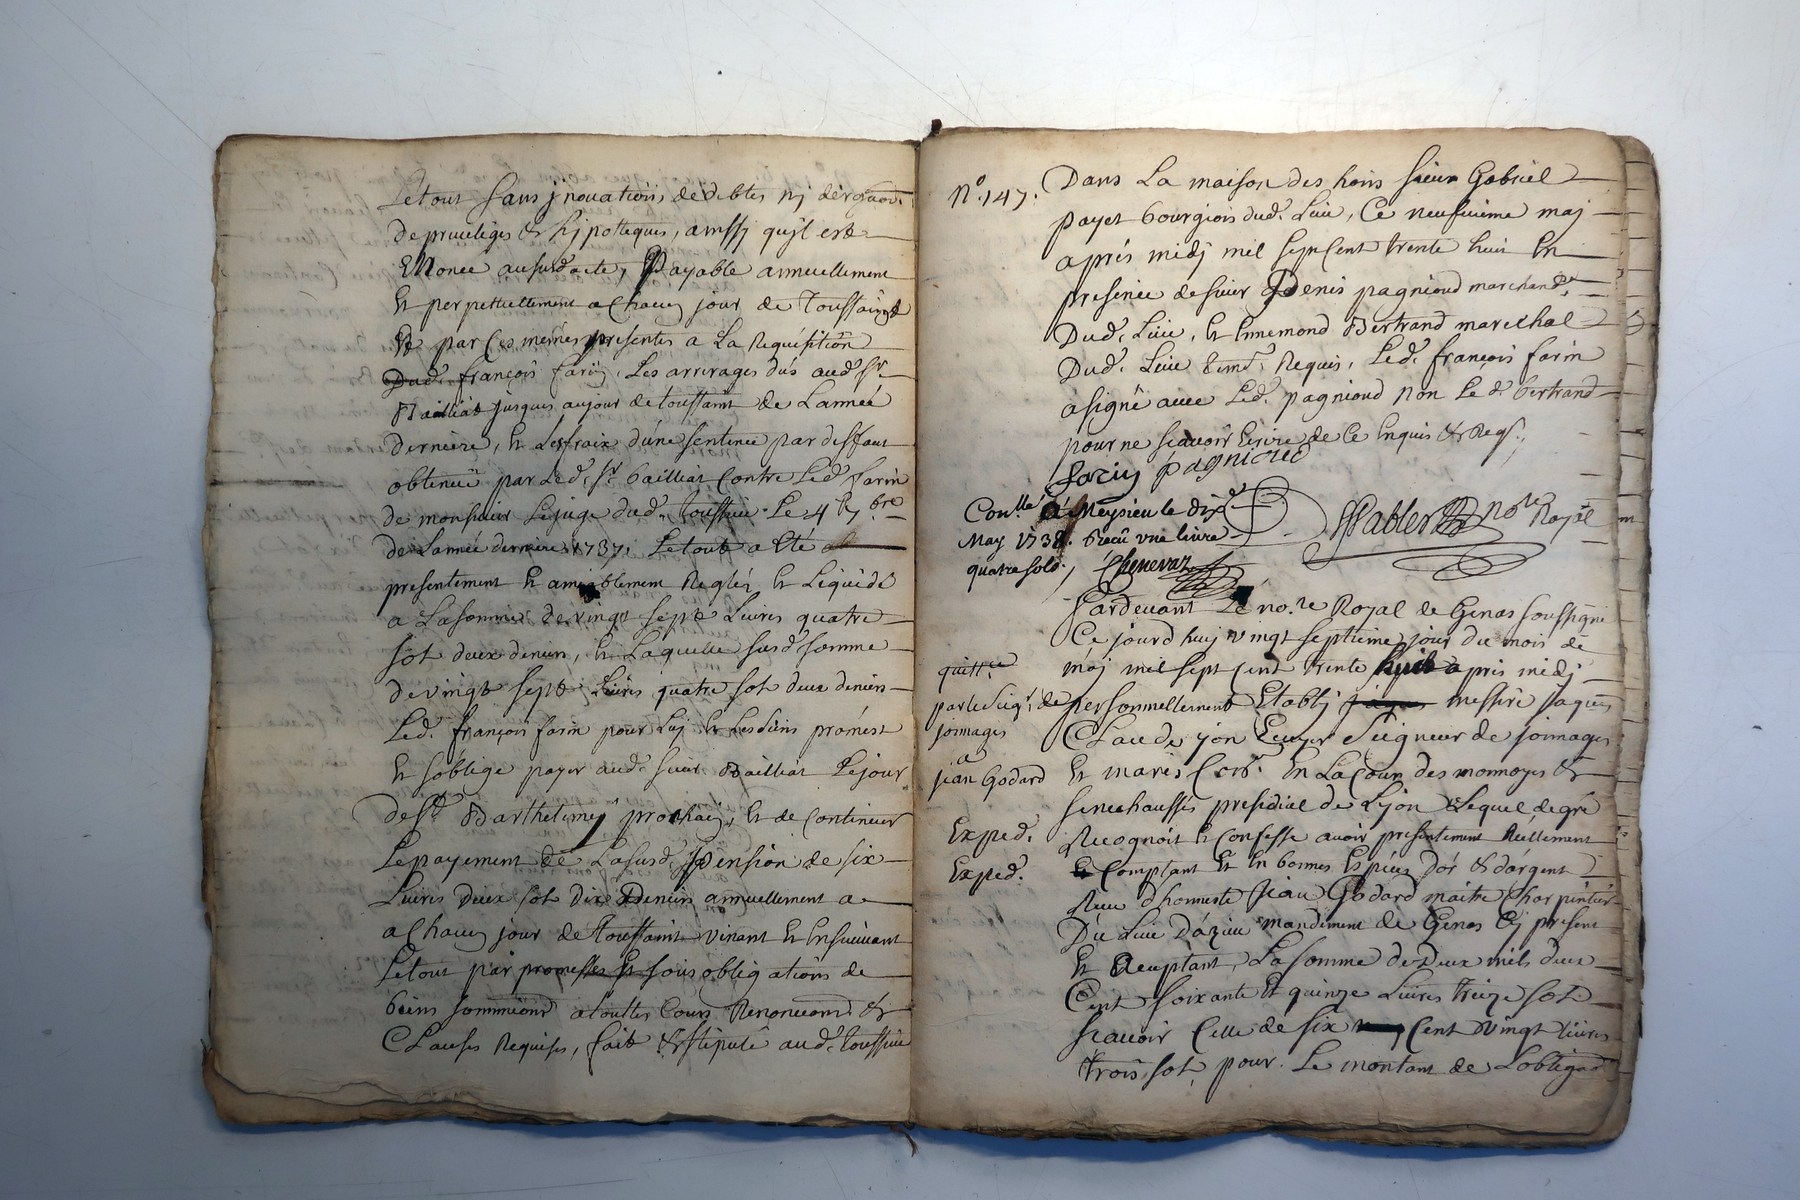 Letout sans jnouations de debtes nj derogaon.
de priuileges & hjpoteques, aussj quil est
Enonce aususd. acte, Payable annuellement
Et perpettuellement a Chacun jour de Toussaingt
Et par Ces mémes presentes a La Requisition
Dud. françois farin, Les arrerages dús aud. Sr.
Bailliat jusques aujour de toussaint de Lannéé
derniere, Et Lesfraix dune sentence par deffaut
obtenuë par Led. Sr. bailliat Contre Led. farin
de monsieur Lejuge dud. toussieu Le 4 7bre
de Lannéé derniere 1737, Letout a Eté
presentement Et amiablement Reglés Et Liquidé
a Lasomme de vingt sept Liures quatre
sot deux deniers, Et Laquelle susd. somme
de vingt sept Liures quatre sot deux deniers
Led. françois farin pour Luj Et Lessiens promest
Et soblige payer aud. sieur Bailliat Lejour
de St. Barthelemj prochain, Et de Continuer
Lepayement de Lasusd. Pension de six
Liures Deux sot Dix Deniers annuellement a
a Chacun jour de Toussaint venant Et Ensuiuant
Letout par promesses Et sous obligations de
biens soummions a touttes Cours Renonciaons &
Clauses Requises, fait & stipulé aud. toussieu
No. 147.
Dans La maison des hoirs sieur Gabriel
payet bourgiois dud. Lieu, Ce neufuieme maj
aprés midj mil sept Cent trente huit En
presence de sieur Denis pagnioud marchand
Dud. Lieu, Et Ennemond Bertrand marechal
Dud. Lieu temd. Requis, Led. françois farin
a signé auec Led. pagnioud non Le d. bertrand
pour ne scauoir Ecrire de Ce Enquis & Reqs.,
farin pagnioud
Conllé A Meysieu le dix
May 1738. Recû vne livre
quatre sold., Chenevaz
Pallex nore Royal
Pardeuant Le no.re Royal de Genas soussigné
Ce jourd huj vingt septieme jour du mois de
maj mil sept Cent trente huit apris midj
personnellement Etablj messire jaques
quitt.ce
par le Seigr. de
joinages
a
jean Godard
Claude yon Ecuyer Seigneur de joinages
Et marés Cosr. En La Cour des monnoyes &
senechaussés presidial de Lyon Lequel de gré
Exped.
Recognoit Et Confesse auoir presentement Reellement
Exped.
Et Comptant Et En bonnes Especes Dór & dargent
Reçu dhonneste Jean Godard maitre Charpentier
Du Lieu Dázieu mandement de Genas Cj present
Et Acceptant, La somme de deux mils deux
Cent soixante Et quinze Liures treize sot
scauoir Celle de six Cent vingt Liures
trois sot pour Le montant de Lobligaon